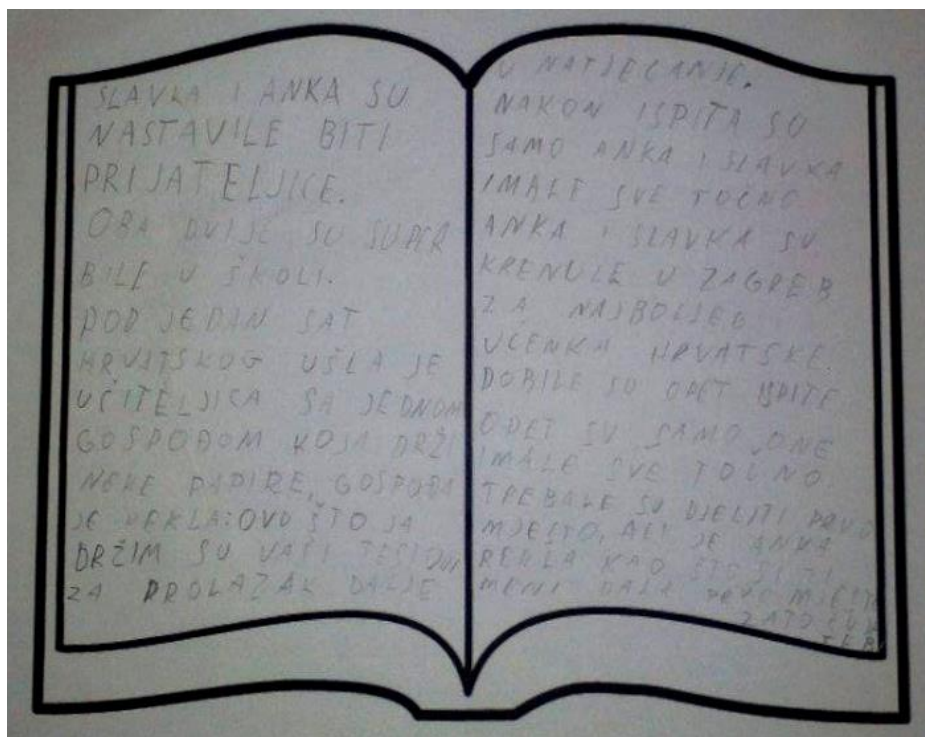 SLAVKA I ANKA SU
NASTAVILE BITI
PRIJATELJICE.
OBA DVIJE SU SUPER
BILE U ŠKOLI.
POD JEDAN SAT
HRVATSKOG UŠLA JE
UČITELJICA SA JEDNOM
GOSPOĐOM KOJA DRŽI
NEKE PAPIRE. GOSPOĐA
JE REKLA:OVO ŠTO JA
DRŽIM SU VAŠI
ZA PROLAZAK DALJE
U NATJECANJE.
NAKON ISPITA SU
SAMO ANKA I SLAVKA
IMALE SVE TOČNO.
ANKA I SLAVKA SU
KRENULE U ZAGREB
ZA NAJBOLJEG
UČENKA HRVATSKE.
DOBILE SU OPET ISPITE
OPET SU SAMO ONE
IMALE SVE TOČNO.
TREBALE SU DJELITI PRVO
MJESTO, ALI JE ANKA
REKLA KAO ŠTO SI TI
MENI DALA PRVO MJESTO
ZATO ĆU JA
TEBI